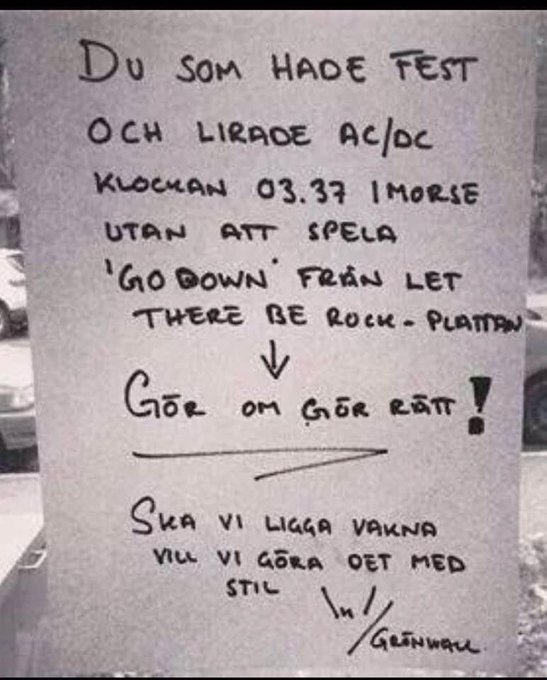 DU SOM HADE FEST
OCH LIRADE AC/DC
KLOCKAN 03.37 IMORSE
UTAN ATT SPELA
'GO DOWN' FRÅN LET
THERE BE ROCK - PLATTAN
↓
GÖR OM GÖR RÄTT!
SKA VI LIGGA VAKNA
VILL VI GÖRA DET MED
STIL \m/
/GRÖNWALL